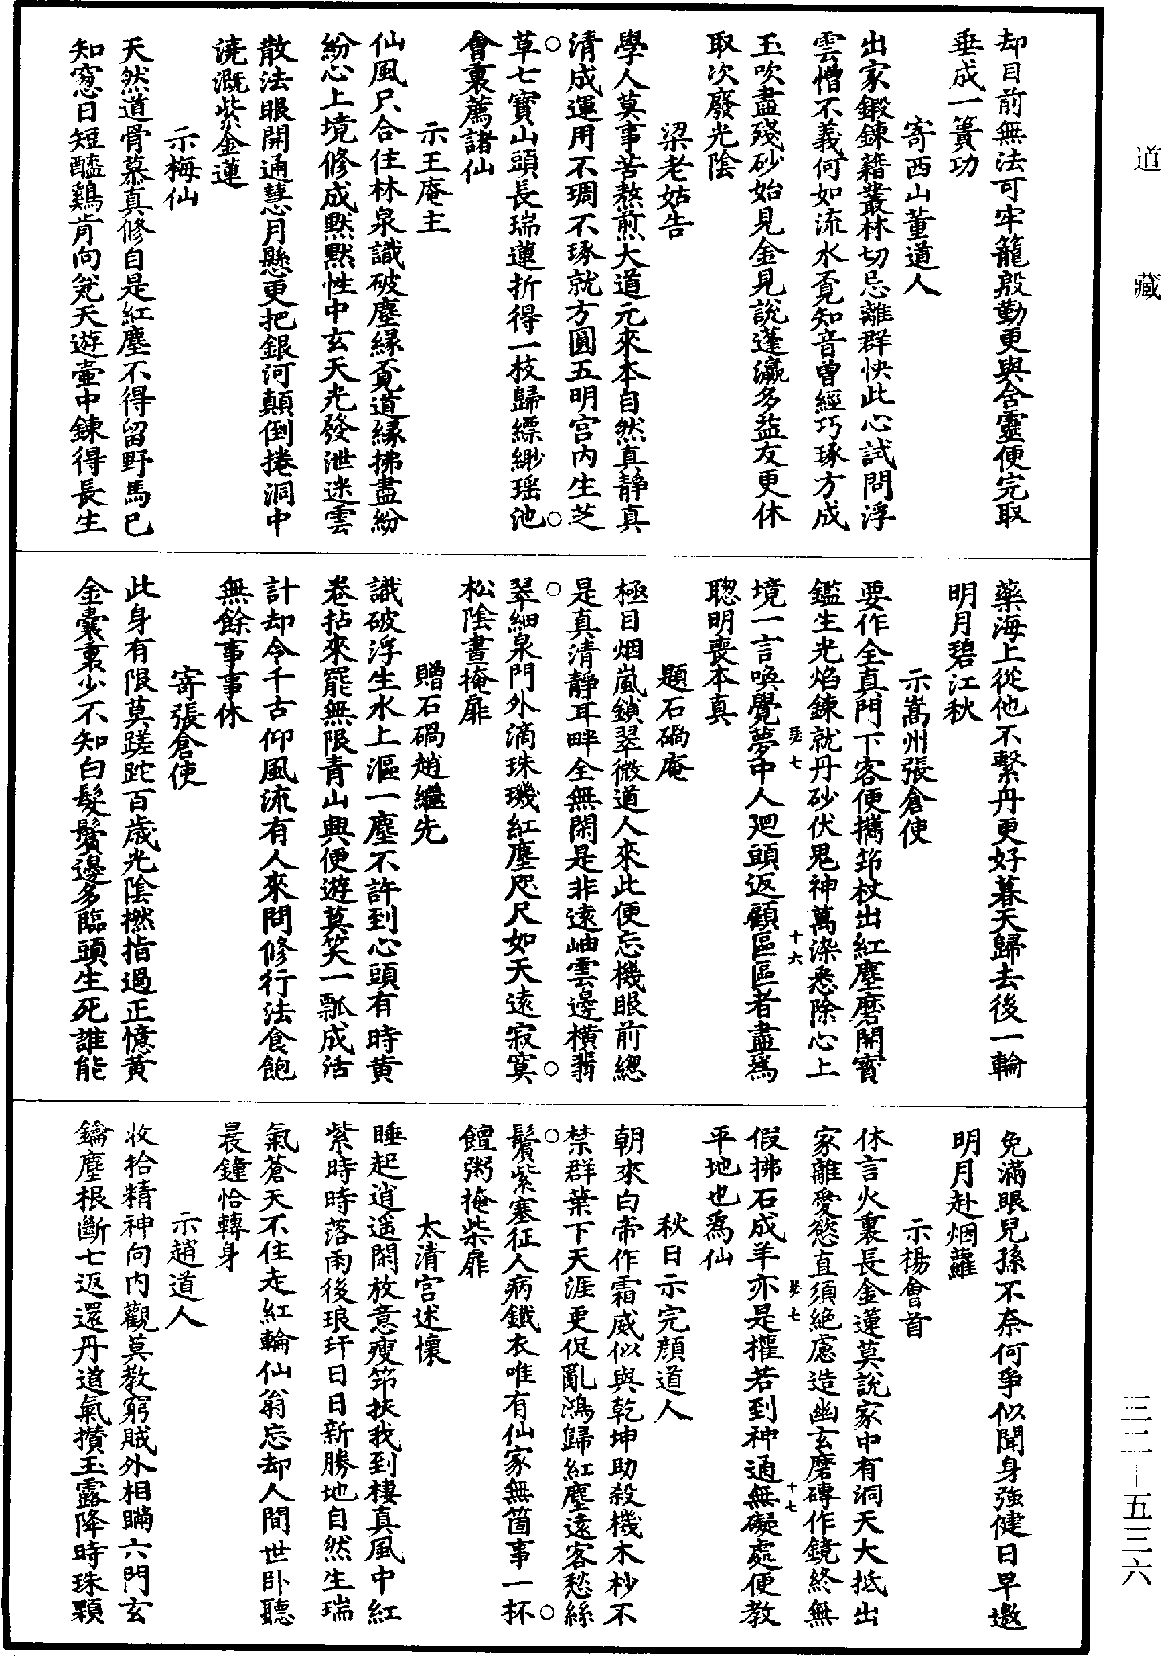 道藏
却目前無法可牢籠殷勤更與含靈便完取
垂成一簣功
寄西山董道人
出家鍛鍊藉叢林切忌離群快此心試問浮
雲憎不義何如流水覓知音曾經巧琢方成
玉吹盡殘砂始見金見說蓬瀛多益友更休
取次廢光陰
梁老姑告
學人莫事苦熬煎大道元來本自然真靜真
清成運用不琱不琢就方圓五明宮內生芝
草七寶山頭長瑞蓮折得一枝歸縹緲瑤池
會裏薦諸仙
示王庵主
仙風只合住林泉識破塵緣覓道緣拂盡紛
紛心上境修成默默性中玄天光發泄迷雲
散法眼開通慧月懸更把銀河顛倒捲洞中
澆溉紫金蓮
示梅仙
天然道骨慕真修自是紅塵不得留野馬已
知窻日短醯鷄肯向瓮天遊壷中鍊得長生
藥海上從他不繫舟更好暮天歸去後一輪
明月碧江秋
示嵩州張倉使
要作全真門下客便攜筇杖出紅塵磨開寳
鑑生光焰鍊就丹砂伏鬼神萬染悉除心上
境一言喚覺夢中人廻頭返顧區區者盡爲
聰明喪本真
題石碢庵
極目烟嵐鎖翠微道人來此便忘機眼前緫
是真清靜耳畔全無閑是非遠岫雲邊橫翡
翠細泉門外滴珠璣紅塵咫尺如天遠寂寞
松陰晝掩扉
贈石碢趙繼先
識破浮生水上漚一塵不許到心頭有時黄
卷拈來罷無限青山興便遊莫笑一瓢成活
計却令千古仰風流有人來問修行法食飽
無餘事事休
寄張倉使
此身有限莫蹉跎百歲光陰撚指過正憶黄
金囊裏少不知白髮鬢邊多臨頭生死誰能
免滿眼兒孫不奈何爭似聞身強健日早邀
明月赴烟蘿
示楊會首
休言火裏長金蓮莫說家中有洞天大抵出
家離愛慾直須絶慮造幽玄磨磚作鏡終無
假拂石成羊亦是權若到神通無礙處便教
平地也爲仙
秋日示完顔道人
朝來白帝作霜威似與乾坤助殺機木杪不
禁群葉下天涯更促亂鴻歸紅塵遠客愁絲
鬢紫塞征人病鐵衣唯有仙家無箇事一杯
饘粥掩柴扉
太清宫述懷
睡起逍遥閑放意瘦筇扶我到棲真風中紅
紫時時落雨後琅玕日日新勝地自然生瑞
氣蒼天不住走紅輪仙翁忘却人間世卧聽
晨鐘恰轉身
示趙道人
收拾精神向内觀莫教窮賊外相瞞六門玄
鑰塵根斷七返還丹道氣攅玉露降時珠顆
三二—五三六